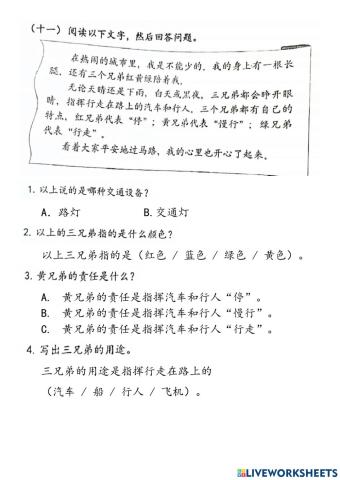 （十一） 阅读以下文字，然后回答问题。
在热闹的城市里，我是不能少的，我的身上有一根长
腿，还有三个兄弟红黄绿陪着我。
无论天晴还是下雨，白天或黑夜，三兄弟都会睁开眼
睛，指挥行走在路上的汽车和行人，三个兄弟都有自己的
特点，红兄弟代表“停”；黄兄弟代表“慢行”；绿兄弟
代表“行走”。
看着大家平安地过马路，我的心里也开心了起来。
1. 以上说的是哪种交通设备？
A. 路灯 B. 交通灯
2. 以上的三兄弟指的是什么颜色？
以上三兄弟指的是（红色 / 蓝色 / 绿色 / 黄色）。
3. 黄兄弟的责任是什么？
A. 黄兄弟的责任是指挥汽车和行人“停”。
B. 黄兄弟的责任是指挥汽车和行人“慢行”。
C. 黄兄弟的责任是指挥汽车和行人“行走”。
4. 写出三兄弟的用途。
三兄弟的用途是指挥行走在路上的
（汽车 / 船 / 行人 / 飞机）。
LIVEWORKSHEETS